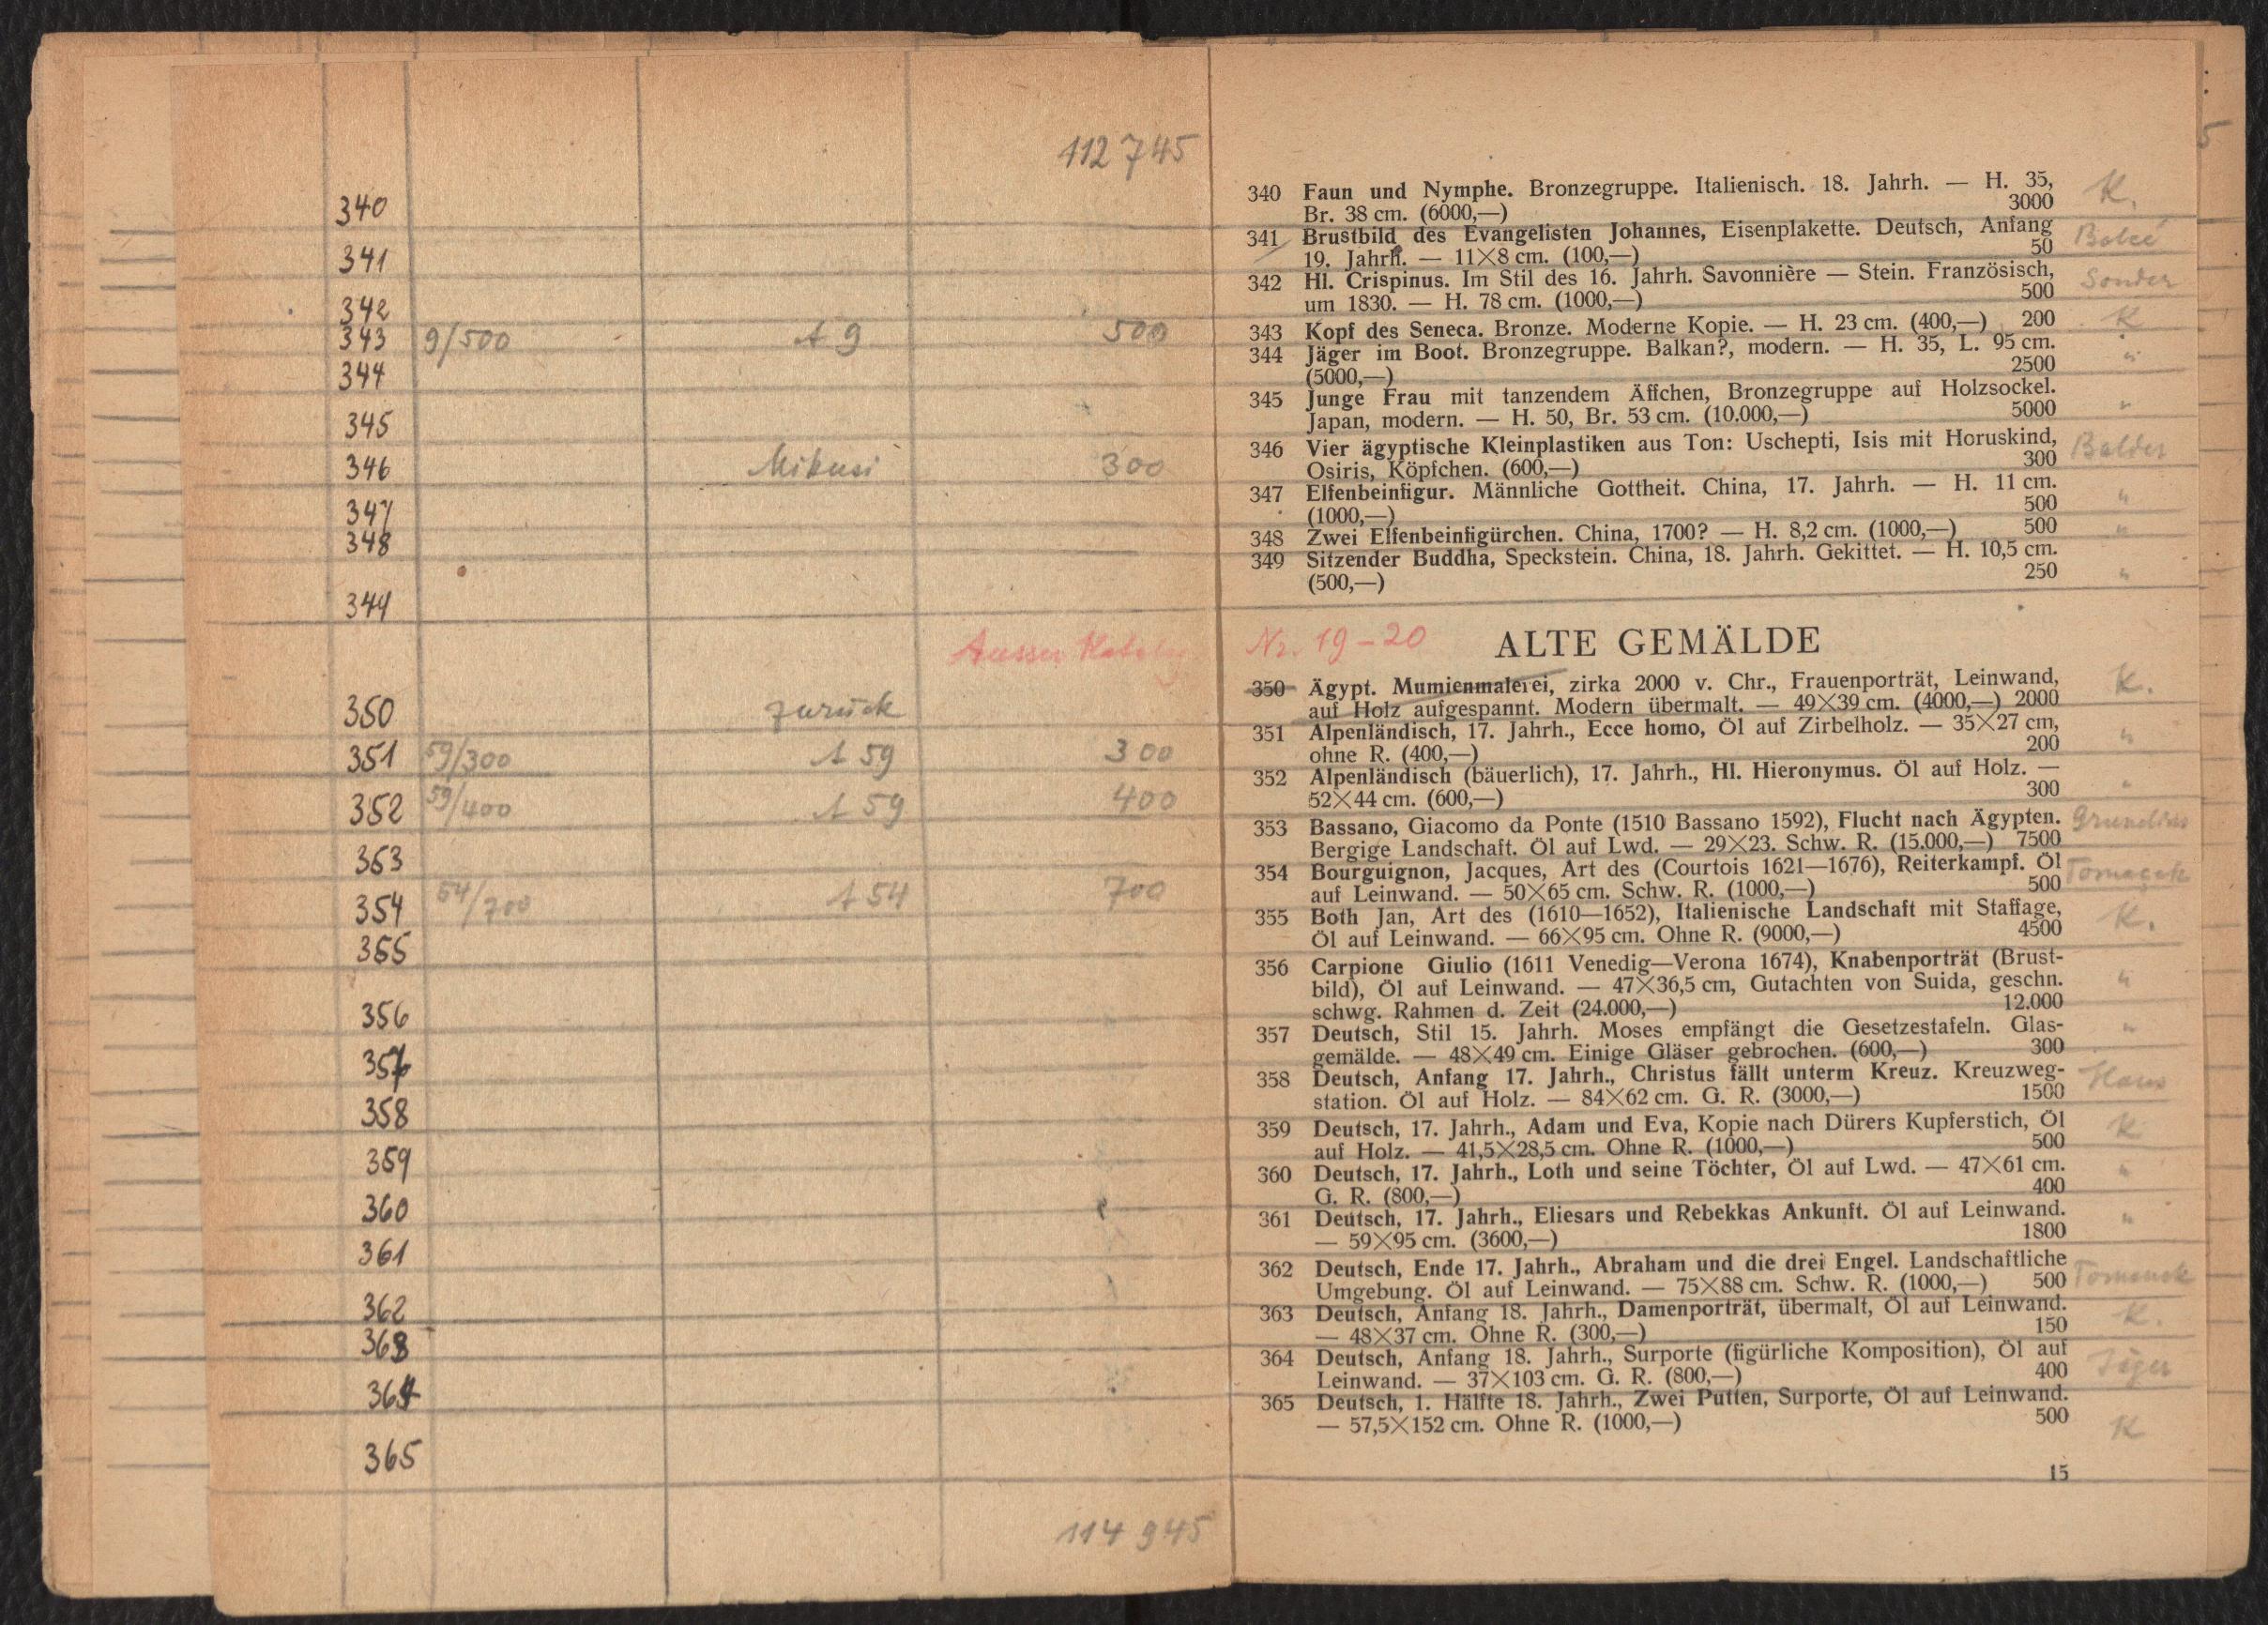 112 745
340
341
342
343 9/500 A 9 500
344
345
346 Mikusi 300
347
348
344
Ausser Katalog
350 zurück
351 59/300 A 59 300
352 59/400 A 59 400
353
354 54/700 A 54 700
355
356
357
358
359
360
361
362
363
364
365
114 945
340 Faun und Nymphe. Bronzegruppe. Italienisch. 18. Jahrh. — H. 35, K.
Br. 38 cm. (6000,—) 3000
341 Brustbild des Evangelisten Johannes, Eisenplakette. Deutsch, Anfang
19. Jahrh. — 11×8 cm. (100,—) 50
342 Hl. Crispinus. Im Stil des 16. Jahrh. Savonnière — Stein. Französisch, Sonder
um 1830. — H. 78 cm. (1000,—) 500
343 Kopf des Seneca. Bronze. Moderne Kopie. — H. 23 cm. (400,—) 200 K
344 Jäger im Boot. Bronzegruppe. Balkan?, modern. — H. 35, L. 95 cm. "
(5000,—) 2500
345 Junge Frau mit tanzendem Äffchen, Bronzegruppe auf Holzsockel. "
Japan, modern. — H. 50, Br. 53 cm. (10.000,—) 5000
346 Vier ägyptische Kleinplastiken aus Ton: Uschepti, Isis mit Horuskind, Balder
Osiris, Köpfchen. (600,—) 300
347 Elfenbeinfigur. Männliche Gottheit. China, 17. Jahrh. — H. 11 cm. "
(1000,—) 500
348 Zwei Elfenbeinfigürchen. China, 1700? — H. 8,2 cm. (1000,—) 500 "
349 Sitzender Buddha, Speckstein. China, 18. Jahrh. Gekittet. — H. 10,5 cm. "
(500,—) 250
Nr. 19-20 ALTE GEMÄLDE
350 Ägypt. Mumienmalerei, zirka 2000 v. Chr., Frauenporträt, Leinwand, K.
auf Holz aufgespannt. Modern übermalt. — 49×39 cm. (4000,—) 2000
351 Alpenländisch, 17. Jahrh., Ecce homo, Öl auf Zirbelholz. — 35×27 cm, "
ohne R. (400,—) 200
352 Alpenländisch (bäuerlich), 17. Jahrh., Hl. Hieronymus. Öl auf Holz. — "
52×44 cm. (600,—) 300
353 Bassano, Giacomo da Ponte (1510 Bassano 1592), Flucht nach Ägypten.
Bergige Landschaft. Öl auf Lwd. — 29×23. Schw. R. (15.000,—) 7500
354 Bourguignon, Jacques, Art des (Courtois 1621—1676), Reiterkampf. Öl
auf Leinwand. — 50×65 cm. Schw. R. (1000,—) 500
355 Both Jan, Art des (1610—1652), Italienische Landschaft mit Staffage, K.
Öl auf Leinwand. — 66×95 cm. Ohne R. (9000,—) 4500
356 Carpione Giulio (1611 Venedig—Verona 1674), Knabenporträt (Brust- "
bild), Öl auf Leinwand. — 47×36,5 cm, Gutachten von Suida, geschn.
schwg. Rahmen d. Zeit (24.000,—) 12.000
357 Deutsch, Stil 15. Jahrh. Moses empfängt die Gesetzestafeln. Glas- "
gemälde. — 48×49 cm. Einige Gläser gebrochen. (600,—) 300
358 Deutsch, Anfang 17. Jahrh., Christus fällt unterm Kreuz. Kreuzweg-
station. Öl auf Holz. — 84×62 cm. G. R. (3000,—) 1500
359 Deutsch, 17. Jahrh., Adam und Eva, Kopie nach Dürers Kupferstich, Öl K
auf Holz. — 41,5×28,5 cm. Ohne R. (1000,—) 500
360 Deutsch, 17. Jahrh., Loth und seine Töchter, Öl auf Lwd. — 47×61 cm. "
G. R. (800,—) 400
361 Deutsch, 17. Jahrh., Eliesars und Rebekkas Ankunft. Öl auf Leinwand. "
— 59×95 cm. (3600,—) 1800
362 Deutsch, Ende 17. Jahrh., Abraham und die drei Engel. Landschaftliche
Umgebung. Öl auf Leinwand. — 75×88 cm. Schw. R. (1000,—) 500
363 Deutsch, Anfang 18. Jahrh., Damenporträt, übermalt, Öl auf Leinwand. K.
— 48×37 cm. Ohne R. (300,—) 150
364 Deutsch, Anfang 18. Jahrh., Surporte (figürliche Komposition), Öl auf Jäger
Leinwand. — 37×103 cm. G. R. (800,—) 400
365 Deutsch, 1. Hälfte 18. Jahrh., Zwei Putten, Surporte, Öl auf Leinwand. K
— 57,5×152 cm. Ohne R. (1000,—) 500
15